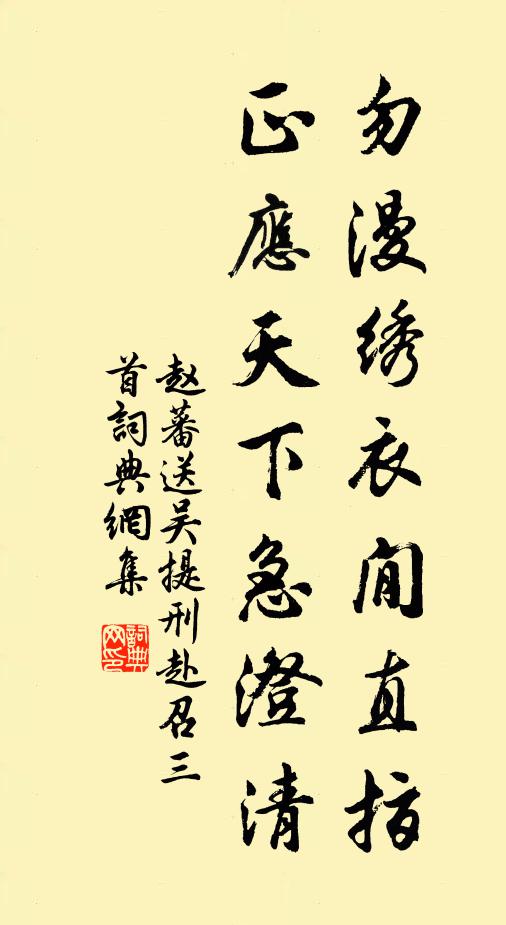 勿漫绣衣閒直指
正應天下急澄清
赵蕃送吴提刑赴召三
首詞典網集
詞典網印